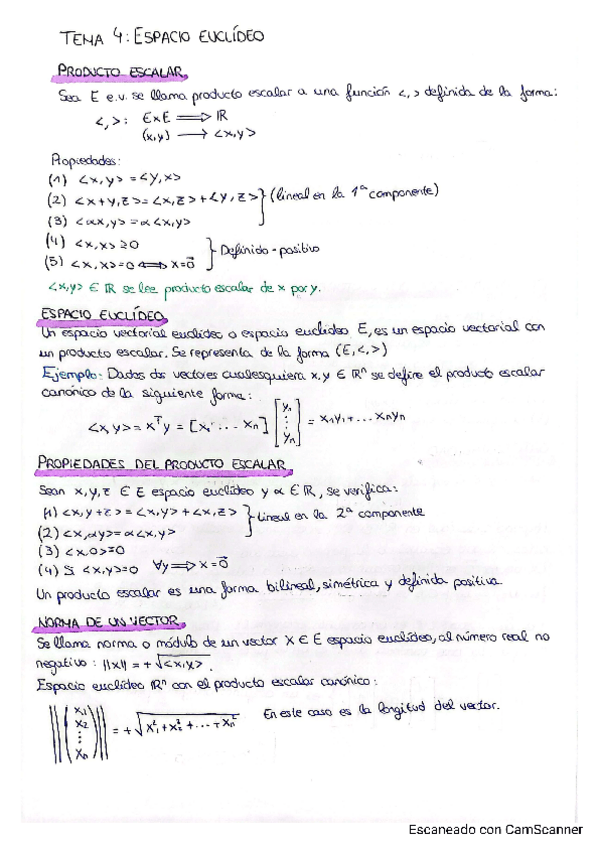 TEMA 4: ESPACIO EUCLÍDEO
PRODUCTO ESCALAR
Sea E e.v. se llama producto escalar a una función <,> definida de la forma:
<,>: E×E ⟹ ℝ
(x,y) ⟶ <x,y>
Propiedades:
(1) <x,y> = <y,x>
(2) <x+y,z> = <x,z> + <y,z> } (lineal en la 1ª componente)
(3) <αx,y> = α<x,y>
(4) <x,x> ≥ 0 } Definido-positivo
(5) <x,x> = 0 ⟺ x = 0⃗
<x,y> ∈ ℝ se lee producto escalar de x por y.
ESPACIO EUCLÍDEO
Un espacio vectorial euclídeo o espacio euclídeo E, es un espacio vectorial con
un producto escalar. Se representa de la forma (E,<,>)
Ejemplo: Dados dos vectores cualesquiera x,y ∈ ℝⁿ se define el producto escalar
canónico de la siguiente forma:
<x,y> = xᵀy = [x₁ ... xₙ] [yₙ ⋮ yₙ] = x₁y₁+... xₙyₙ
PROPIEDADES DEL PRODUCTO ESCALAR
Sean x,y,z ∈ E espacio euclídeo y α ∈ ℝ, se verifica:
(1) <x,y+z> = <x,y> + <x,z> } Lineal en la 2ª componente
(2) <x,αy> = α<x,y>
(3) <x,0> = 0
(4) Si <x,y> = 0 ∀y ⟹ x = 0⃗
Un producto escalar es una forma bilineal, simétrica y definida positiva
NORMA DE UN VECTOR
Se llama norma o módulo de un vector x ∈ E espacio euclídeo, al número real no
negativo: ||x|| = +√<x,x>.
Espacio euclídeo ℝⁿ con el producto escalar canónico:
||(x₁ x₂ ⋮ xₙ)|| = +√x₁²+x₂²+...+xₙ² En este caso es la longitud del vector.
Escaneado con CamScanner